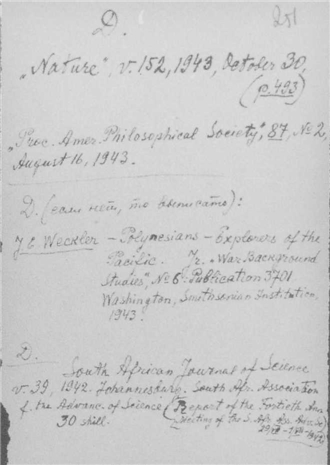 251
D.
„Nature", v. 152, 1943, October 30,
(p. 493)
„Proc. Amer. Philosophical Society", 87, No 2,
August 16, 1943.
D. (если нет, то выписать):
J. E. Weckler – Polynesians – Explorers of the
Pacific. Jr. „War Background
Studies", No 6. Publication 3701
Washington, Smithsonian Institution,
1943.
D.
South African Journal of Science
v. 39, 1942. Johannesburg. South Afr. Association
f. the Advanc. of Science (Report of the Fortieth Ann.
30 shill. Meeting of the S. Afr. Ass. Adv. Sc.